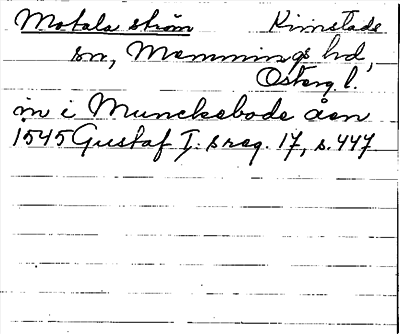 Motala ström Kimstade
sn, Memmings hd,
Österg l.
in i Munckebode åen
1545 Gustaf I:s reg. 17, s. 447